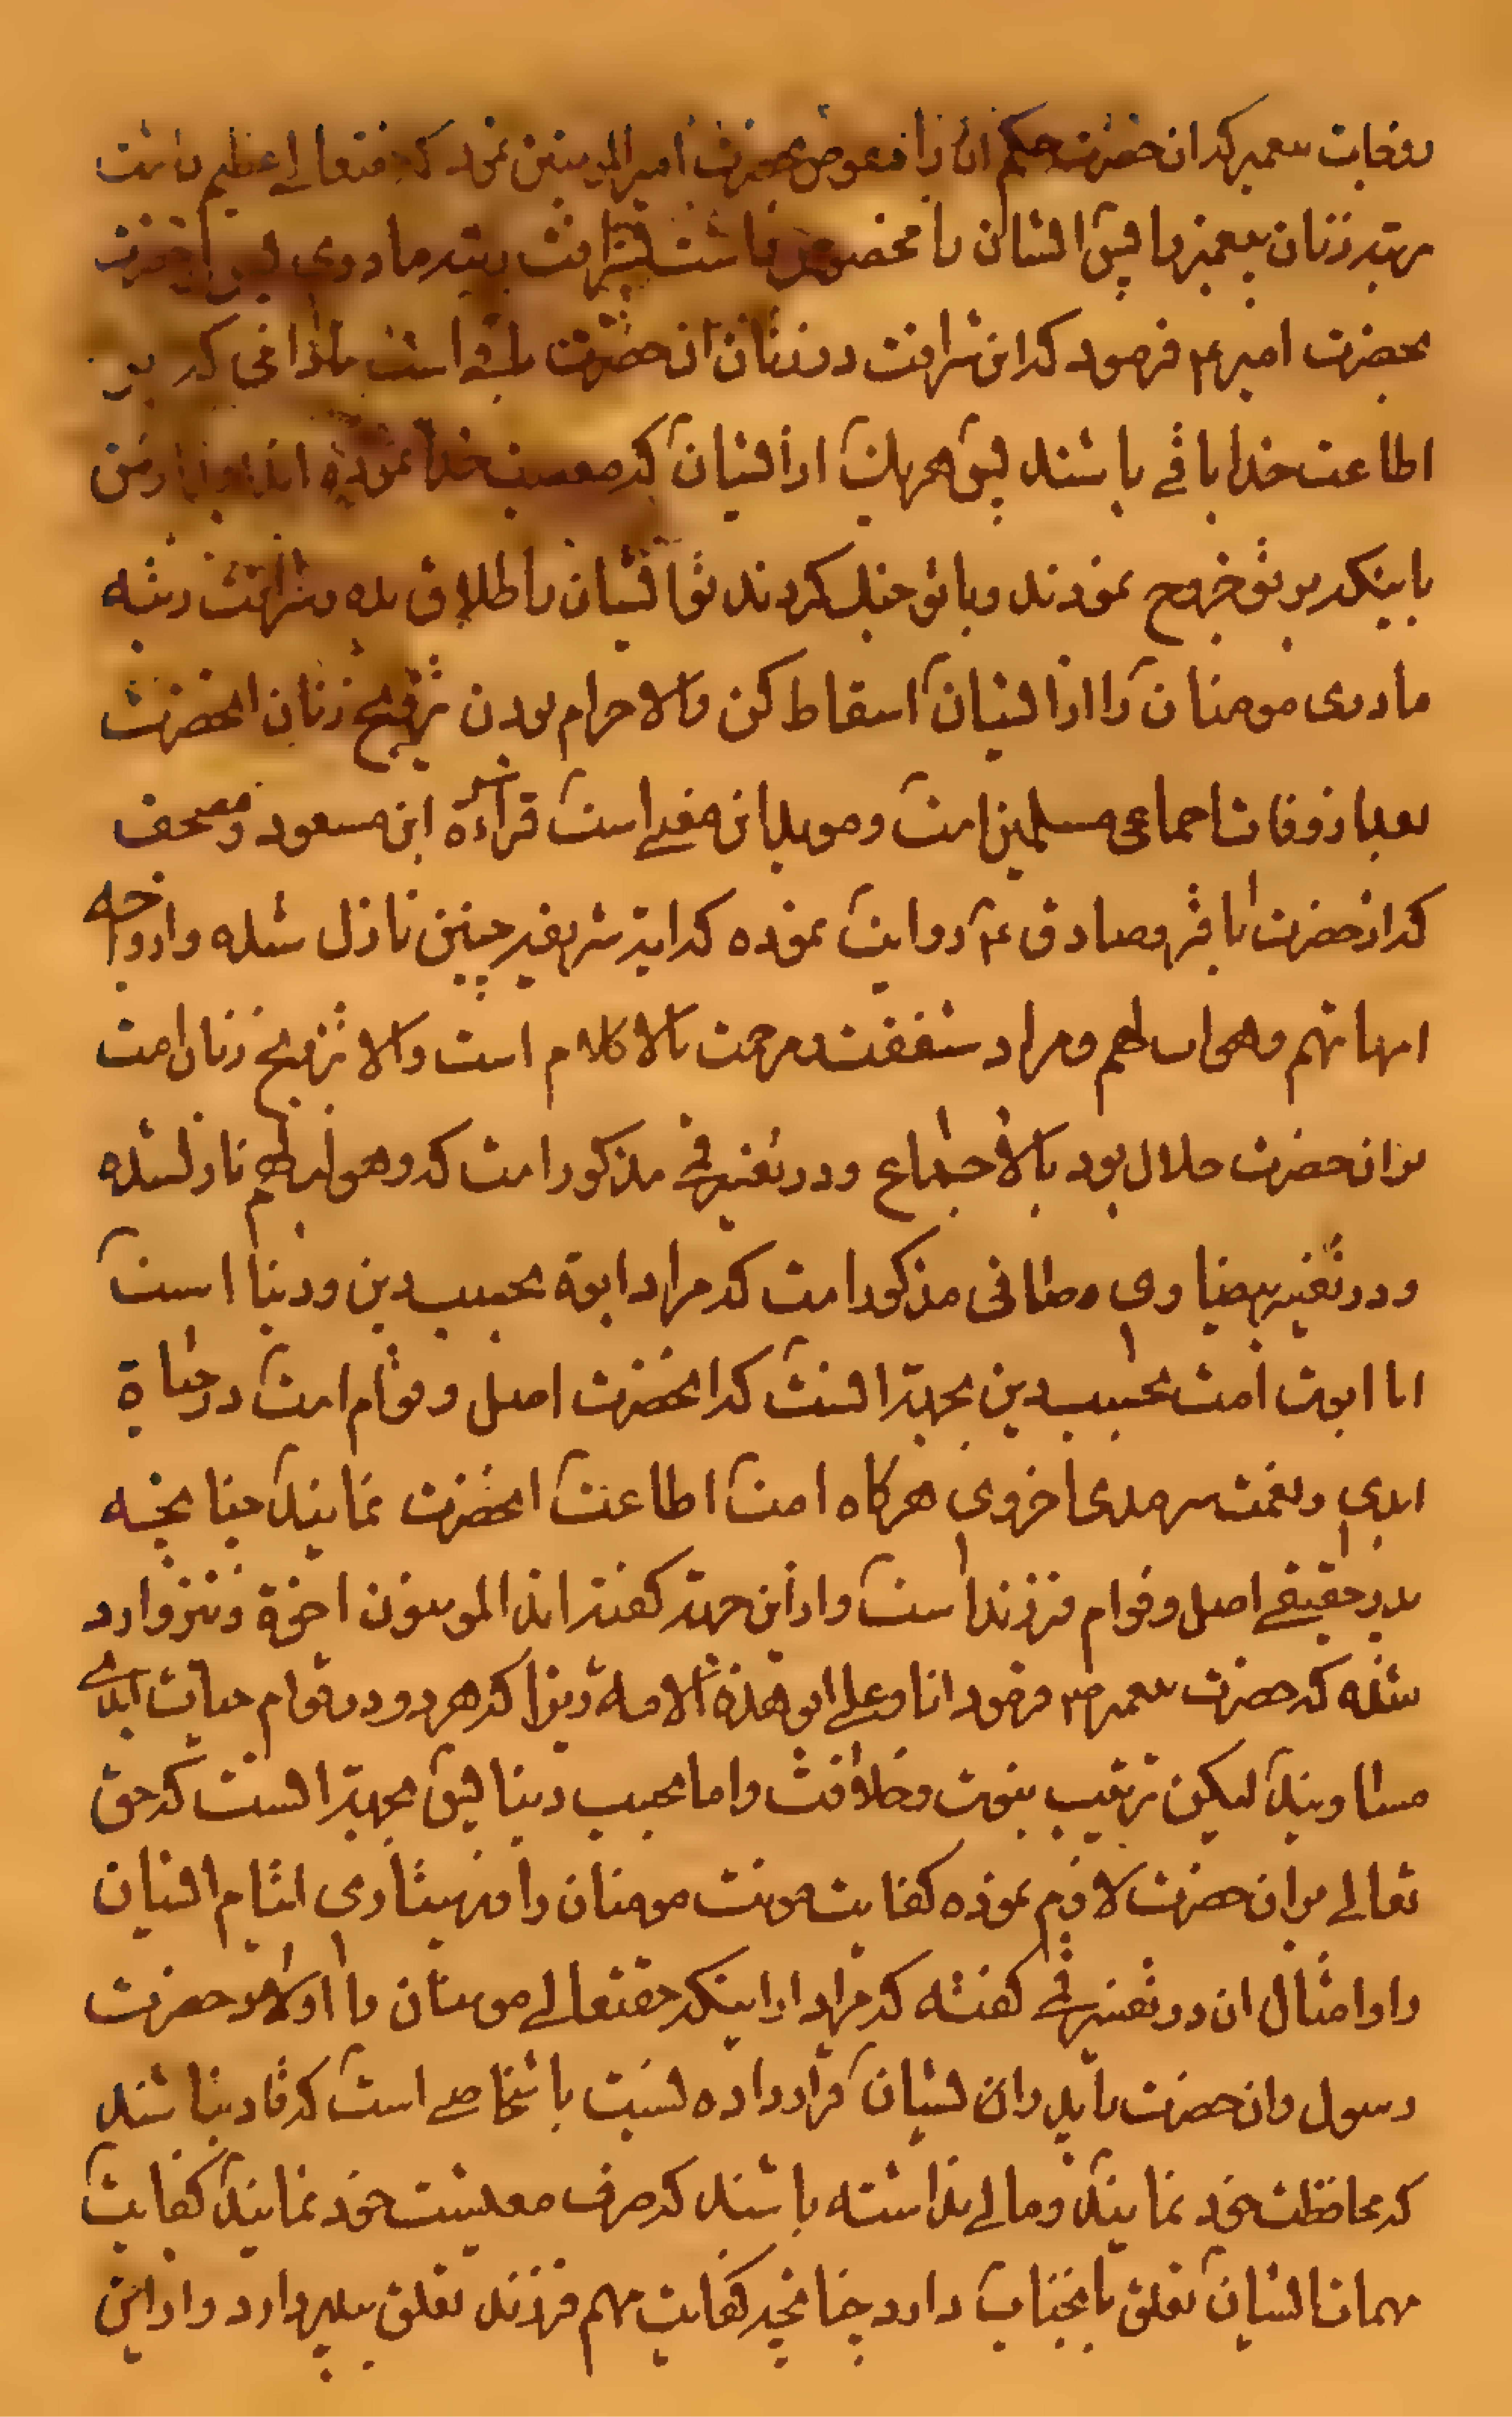 بوفات پیغمبر که ان حضرت حکم انرا مفوض بحضرت امیر المومنین نمود که حقتعالی عظیم داشت
مرتبه زنان پیغمبر را پس ایشان را مخصوص داشت بشرافت رتبه مادری پس
بحضرت امیر ع فرمود که این شرافت در زنان ان حضرت باقی است مادامی که بر
اطاعت خدا باقی باشند پس هر یک از ایشان که معصیت خدا نموده اند بعد از من
باینکه بر تو خروج نمودند و با تو جنک کردند تو ایشان را طلاق بده و شرافت رتبه
مادری مومنان را از ایشان اسقاط کن والا حرام بودن تزویج زنان انحضرت
بعد از وفات اجماعی مسلمین است و موید این معنی است قراءة ابن مسعود و مصحف
که از حضرت باقر و صادق ع روایت نموده که ایه شریفه چنین نازل شده وازواجه
امهاتهم وهو اب لهم و مراد شفقت و مرحمت بالا کلام است والا تزویج زنان امت
بران حضرت حلال بود بالاجماع و در تفسیر قمی مذکور است که وهو اب لهم نازلشده
و در تفسیر بیضاوی و صافی مذکور است که مراد ابوة بحسب دین و دنیا است
اما ابوت امت بحسب دین بجهة انست که انحضرت اصل و قوام امت در حیاة
ابدی و نعمت سرمدی اخروی هر کاه امت اطاعت انحضرت نمایند چنانچه
پدر حقیقی اصل و قوام فرزند است و از این جهة کفته اند المومنون اخوة و نیز وارد
شده که حضرت پیغمبر ص فرمود انا وعلی ابو هذه الامه زیرا که هر دو در قوام حیات ابدی
مساویند لیکن ترتیب نبوت و خلافت و اما بحسب دنیا پس بجهة انست که حق
تعالی بران حضرت لازم نموده کفایت مونت مومنان را و پرستاری ایتام ایشان
را و امثال ان در تفسیر قمی کفته که مراد از اینکه حقتعالی مومنان را اولاد حضرت
رسول و ان حضرت را پدر ان ایشان قرار داده نسبت باشخاصی است که قادر نباشند
که محافظت خود نمایند و مالی نداشته باشند که صرف معیشت خود نمایند کفایت
مهمات ایشان تعلق بانجناب دارد چنانچه کفایت مهم فرزند تعلق بپدر دارد و از این